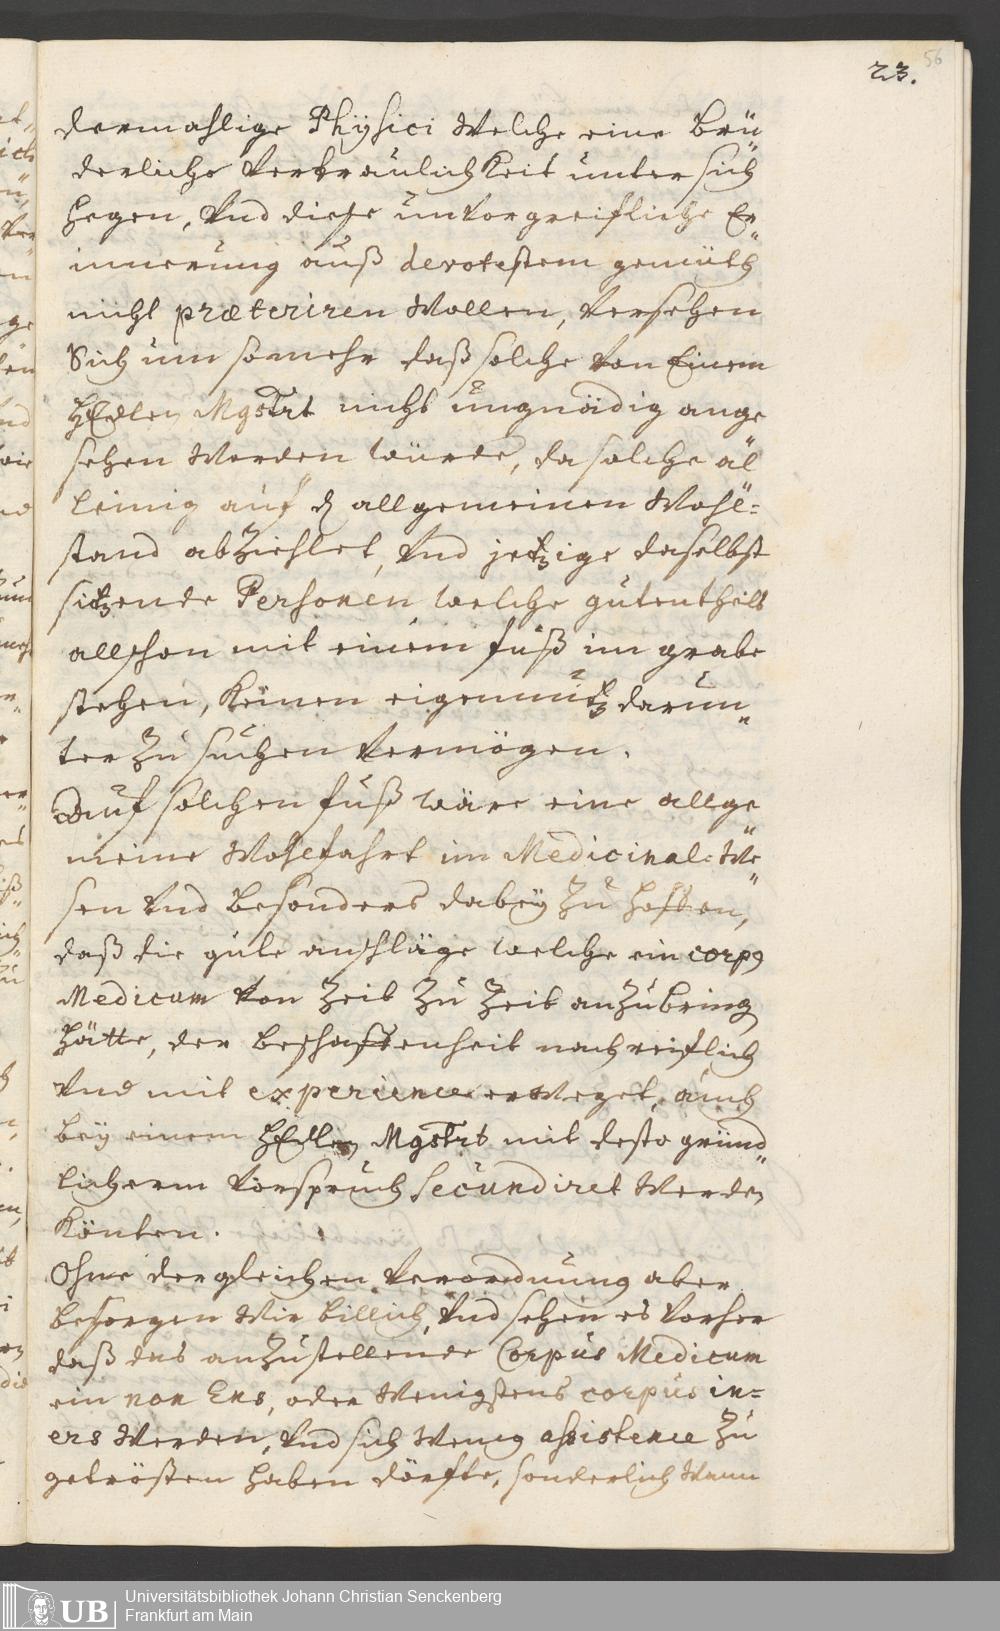 23. 56
dermahlige Physici Welche eine brü„
derliche Vertraulichkeit unter sich
hegen, Vnd diese unvorgreifliche Er„
innerung auß devotestem gemüth
nicht præteriren Wollen, Versehen
Sich um so mehr daß solche Von Einem
HEdlen Mgstrt nicht ungnädig ange
sehen Werden würde, da solche al„
leinig auf den allgemeinen Wohl=
stand abziehlet, Vnd jetzige daselbst
sitzende Personen welche gutentheils
allschon mit einem fuß im grabe
stehen, keinen eigennutz darun„
ter zu suchen Vermögen.
Auf solchen fuß wäre eine allge„
meine Wohlfahrt im Medicinal=We„
sen Vnd besonders dabey zu hoffen,
daß die gute anschläge welche ein corpus
Medicum Von Zeit zu Zeit anzubringen
hätte, der beschaffenheit nach reiflich
Vnd mit experience erweget, auch
bey einem HEdlen Mgstrt mit desto gründ„
licherm Vorspruch secundiret Werden
könten.
Ohne dergleichen Verordnung aber
besorgen Wir billich, Vnd sehen es Vorher
daß das anzustellende Corpus Medicum
ein non Ens, oder Wenigstens corpus in=
ers Werden, Vnd sich Wenig assistence zu
getrösten haben dörfte, sonderlich Wann
UB
Universitätsbibliothek Johann Christian Senckenberg
Frankfurt am Main